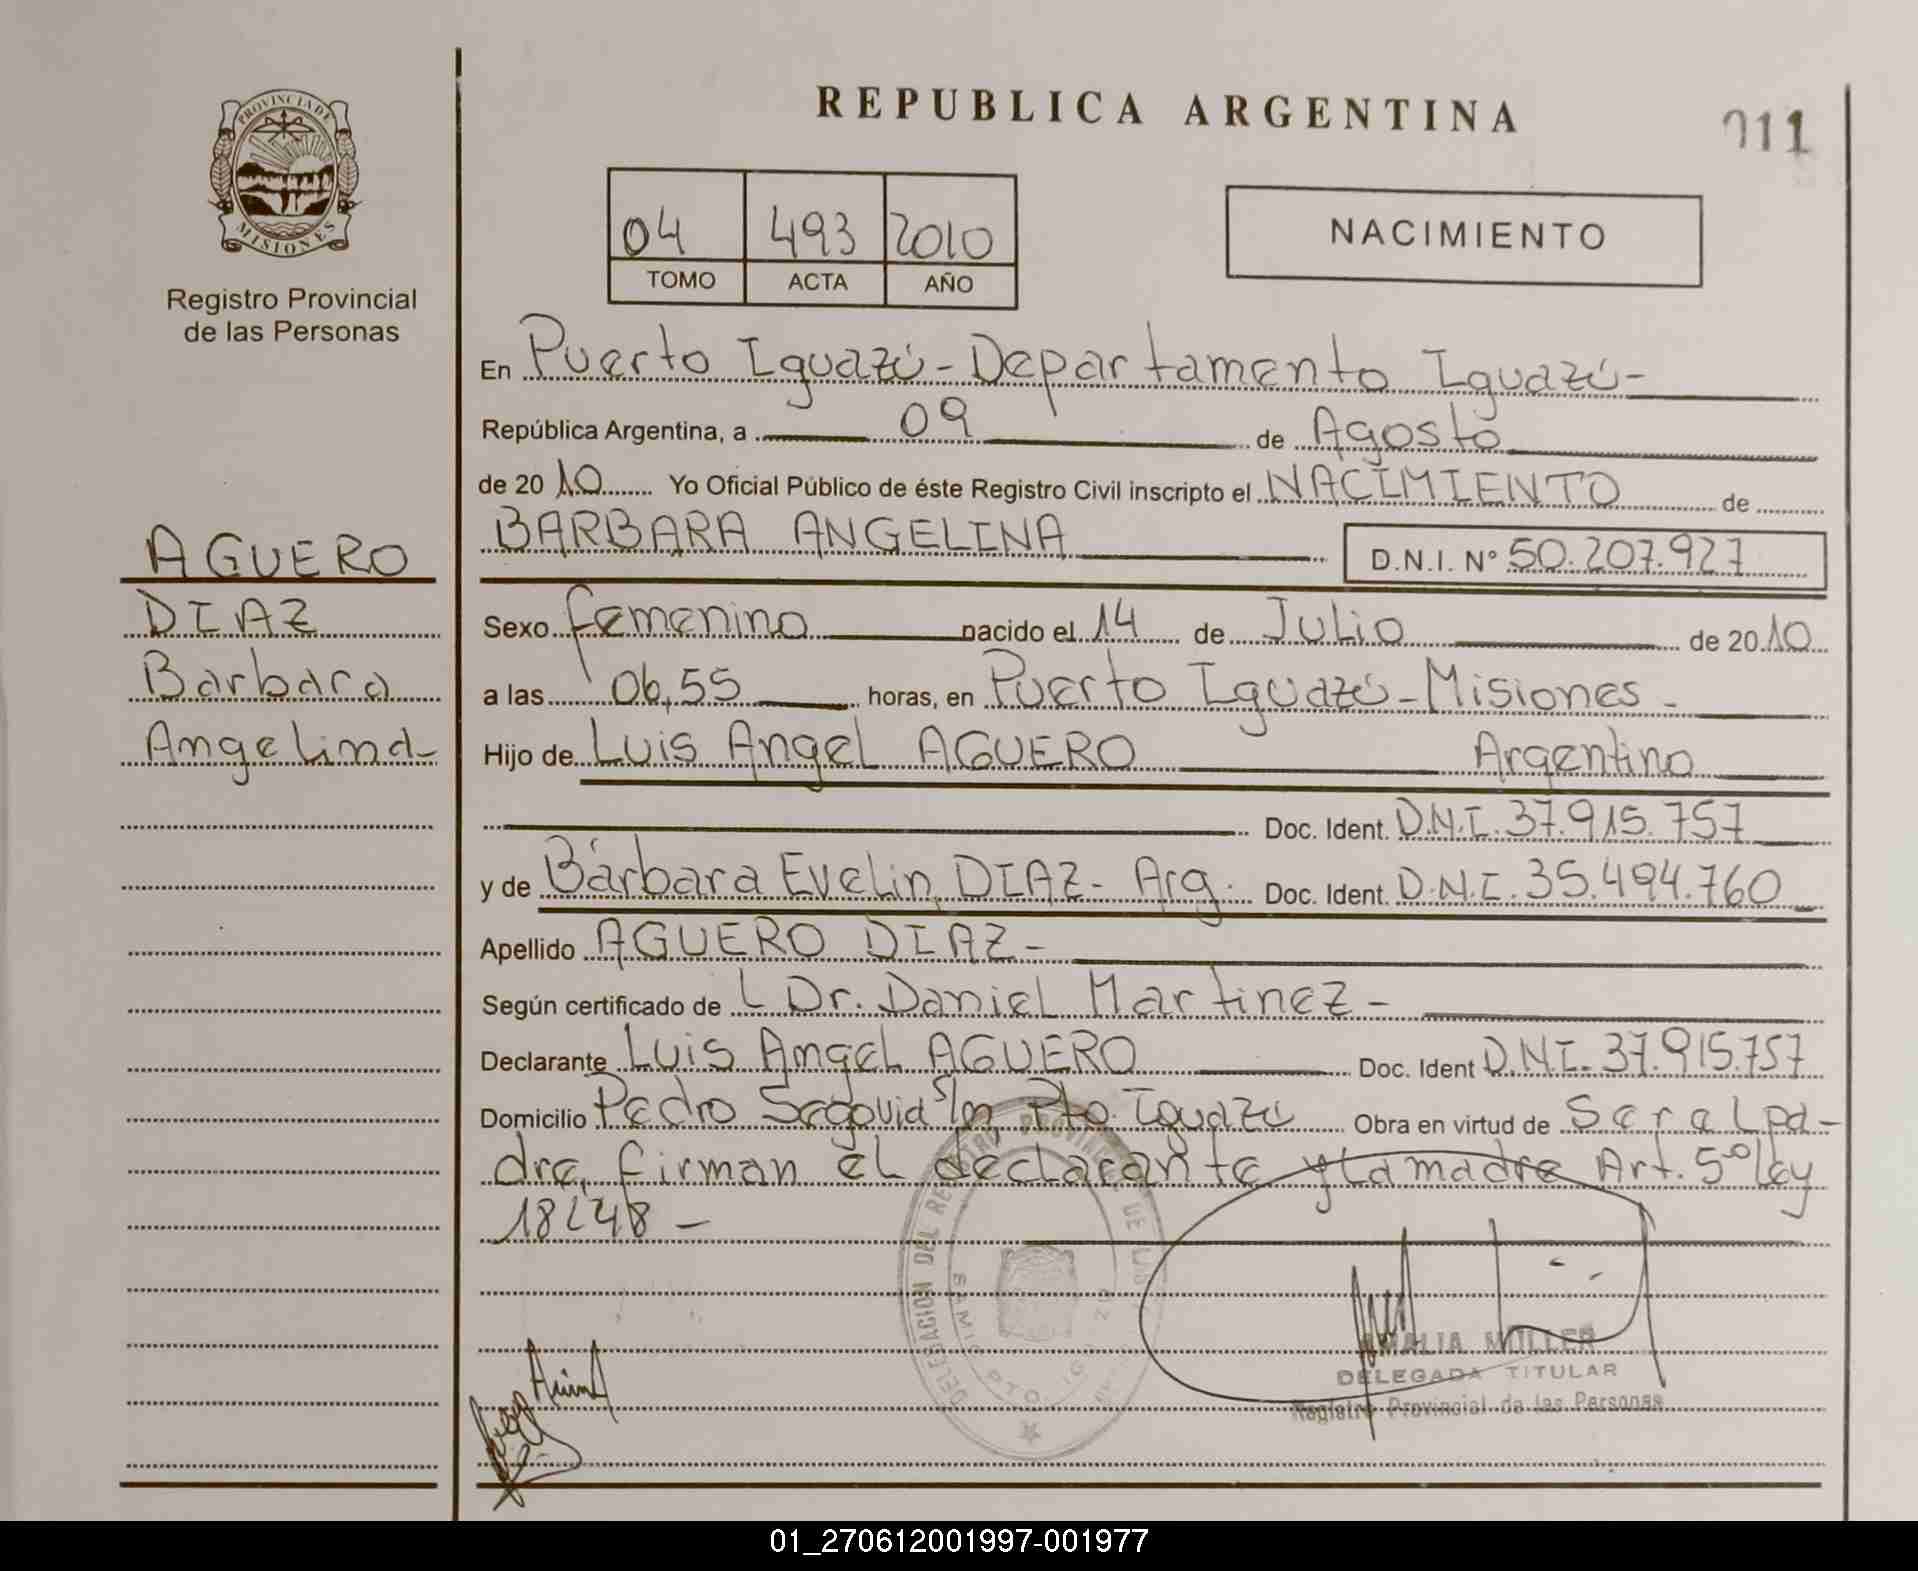 REPUBLICA ARGENTINA
011
PROVINCIA DE
MISIONES
Registro Provincial
de las Personas
04 493 2010
TOMO ACTA AÑO
NACIMIENTO
En Puerto Iguazú - Departamento Iguazú -
República Argentina, a 09 de Agosto
de 20 10 Yo Oficial Público de éste Registro Civil inscripto el NACIMIENTO de
BARBARA ANGELINA D.N.I. Nº 50.207.927
AGUERO
DIAZ
Barbara
Angelina-
Sexo femenino nacido el 14 de Julio de 20 10
a las 06,55 horas, en Puerto Iguazú - Misiones -
Hijo de Luis Angel AGUERO Argentino
Doc. Ident. D.N.I. 37.915.757
y de Bárbara Evelin DIAZ - Arg. Doc. Ident. D.N.I. 35.494.760
Apellido AGUERO DIAZ -
Según certificado de Dr. Daniel Martinez -
Declarante Luis Angel AGUERO Doc. Ident D.N.I. 37.915.757
Domicilio Pedro Segovia s/n Pto. Iguazú Obra en virtud de Ser el pa-
dre, firman el declarante y la madre Art. 5º ley
18248 -
DELEGACION DEL REGISTRO PROVINCIAL DE LAS
PTO.
AMALIA MULLER
DELEGADA TITULAR
Registro Provincial de las Personas
01_270612001997-001977